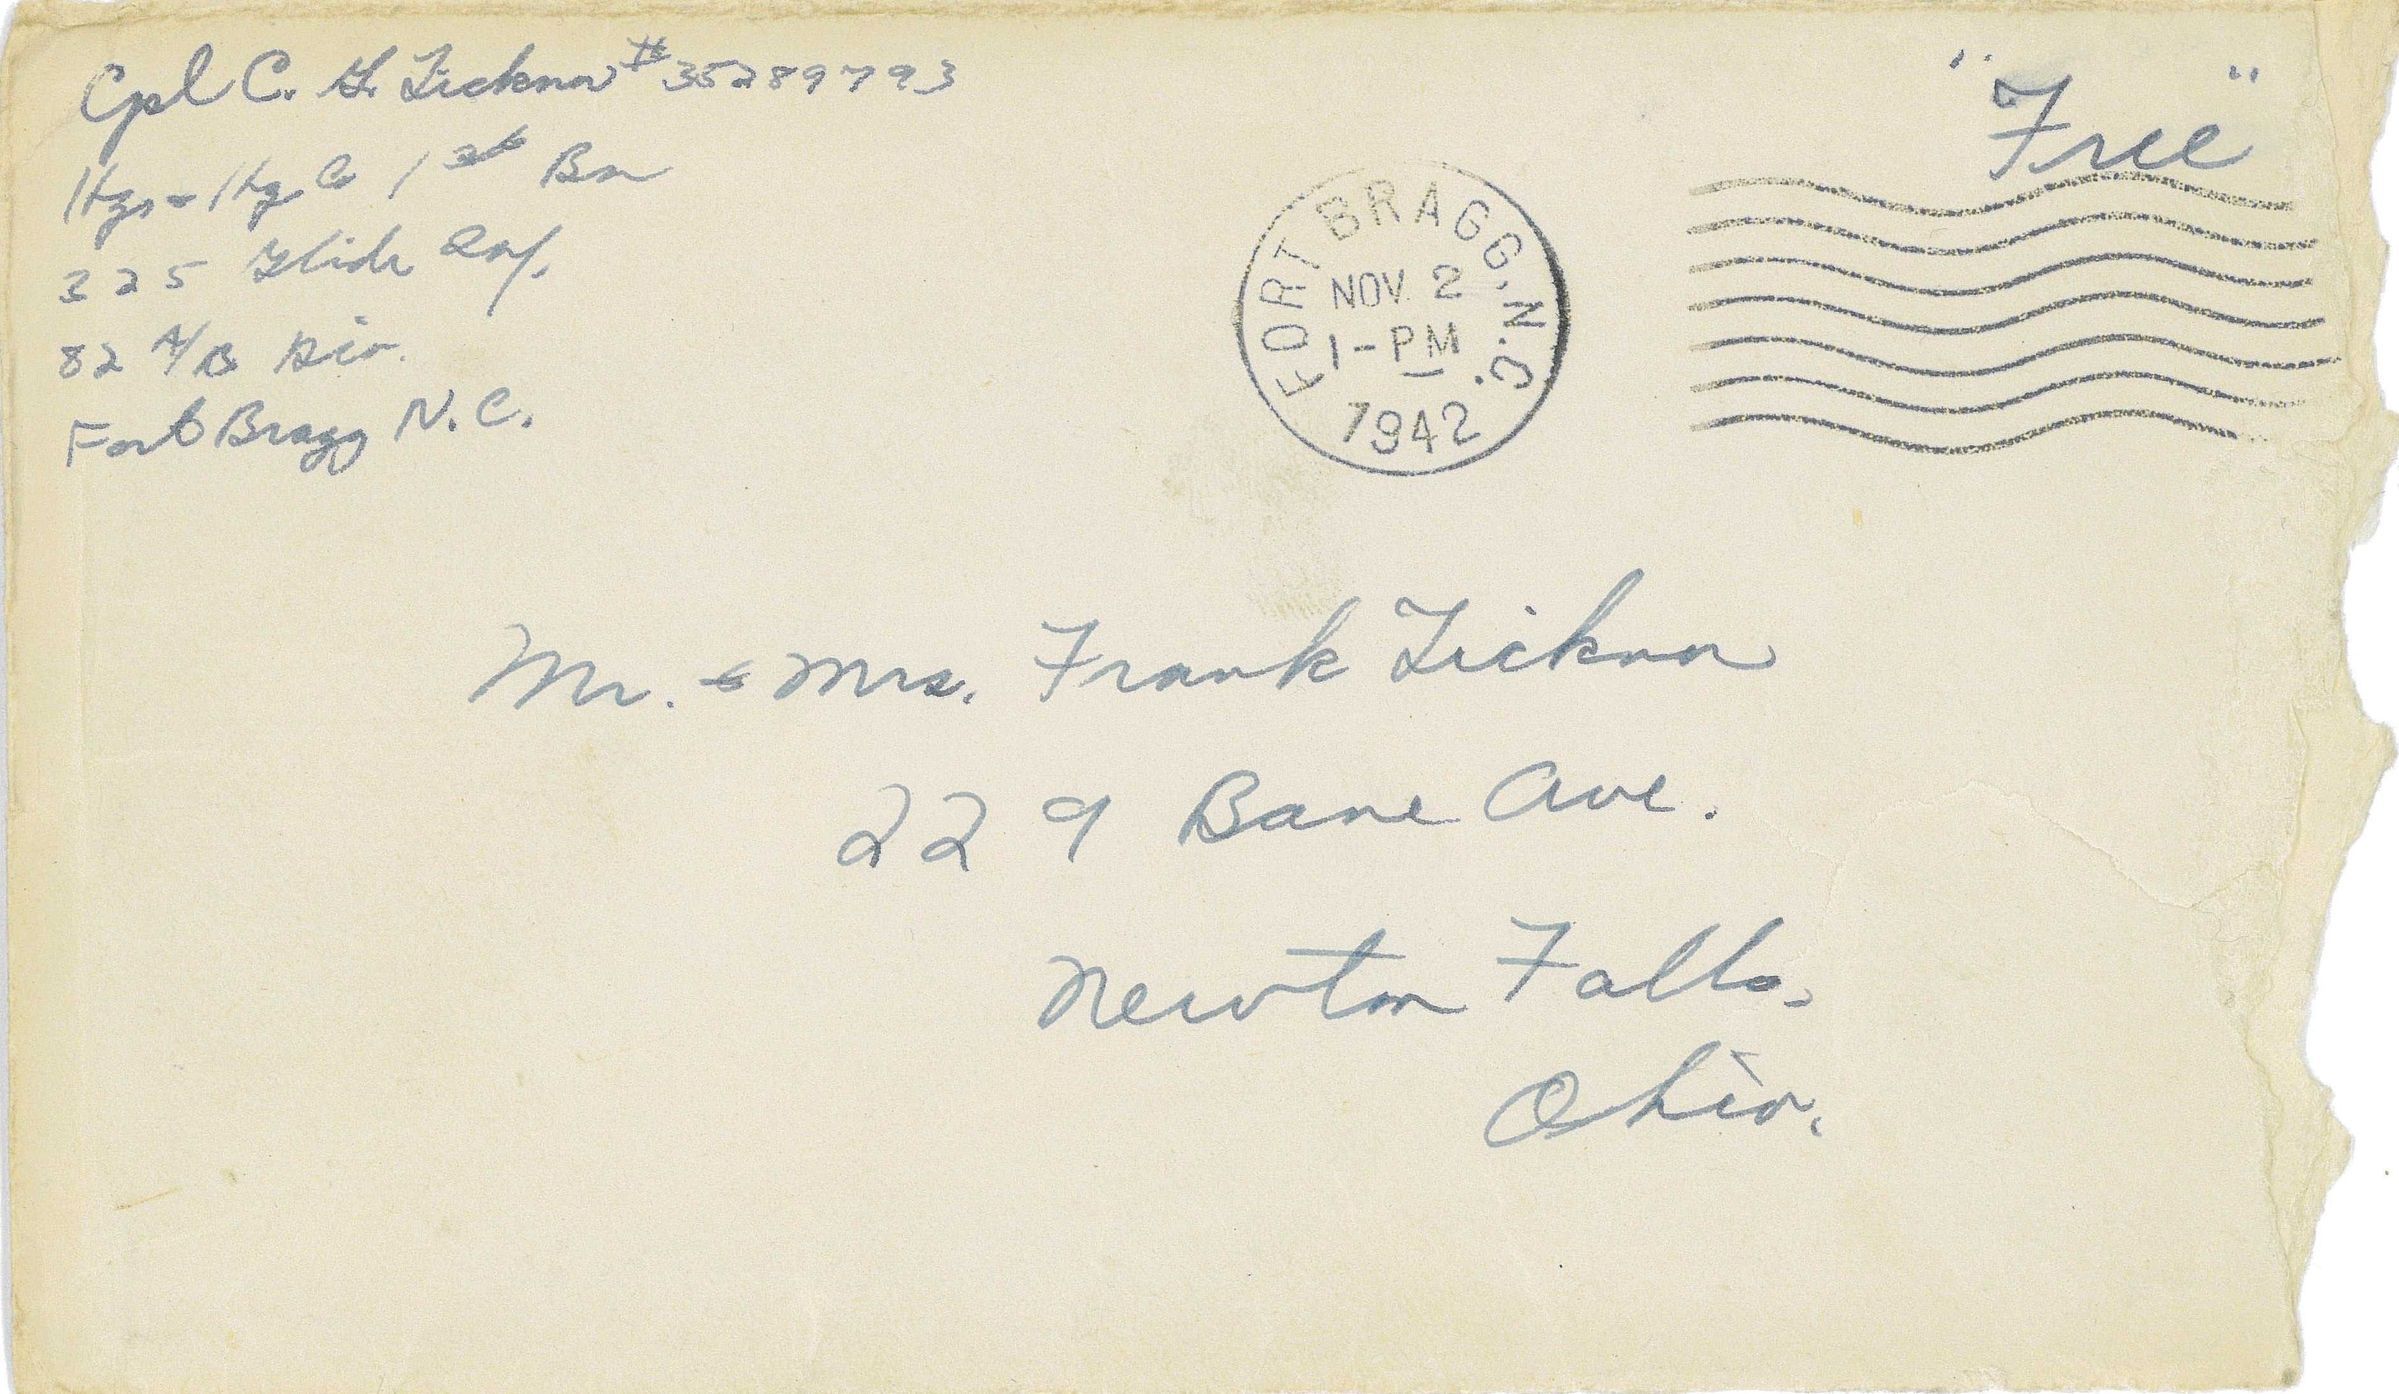 Cpl C. G. Ticknor #35289793
Hqs & Hq Co 1st Bn
325 Glide Inf.
82 A/B Div.
Fort Bragg N.C.
"Free"
FORT BRAGG, N.C.
NOV 2
1-PM
1942
Mr. & Mrs. Frank Ticknor
229 Bane Ave.
Newton Falls,
Ohio.